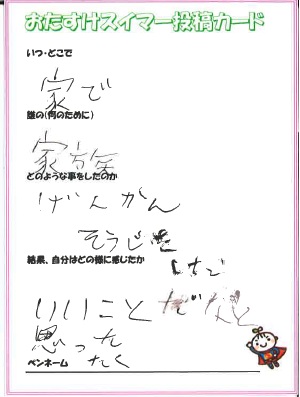 おたすけスイマー投稿カード
いつ・どこで
家で
誰の(何のために)
家族
どのような事をしたのか
げんかん
そうじを
した
結果、自分はどの様に感じたか
いいことだなと
思った
ペンネーム たく